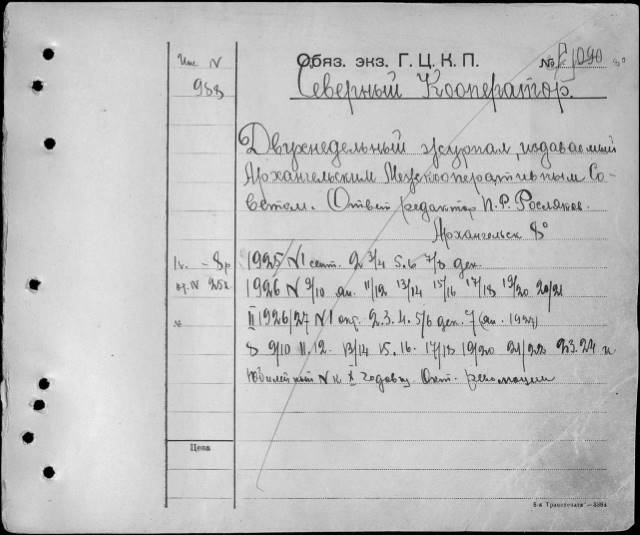 Инв N Обяз. экз. Г. Ц. К. П. №
988 Северный Кооператор.
Двухнедельный журнал, издаваемый
Архангельским Межкооперативным Со-
ветом. Ответ редактор П. Р. Росляков.
Архангельск 8°
1925 N1 сент. 2 3/4 5.6 7/8 дек.
1926 N 9/10 ян. 11/12 13/14 15/16 17/18 19/20 20/21
II 1926/27 N1 окт. 2. 3. 4. 5/6 дек. 7 (ян. 1927)
8 9/10 11. 12. 13/14 15. 16. 17/18 19/20 21/22 23. 24 и
Юбилейный N к X годовщ. Окт. революции
Цена